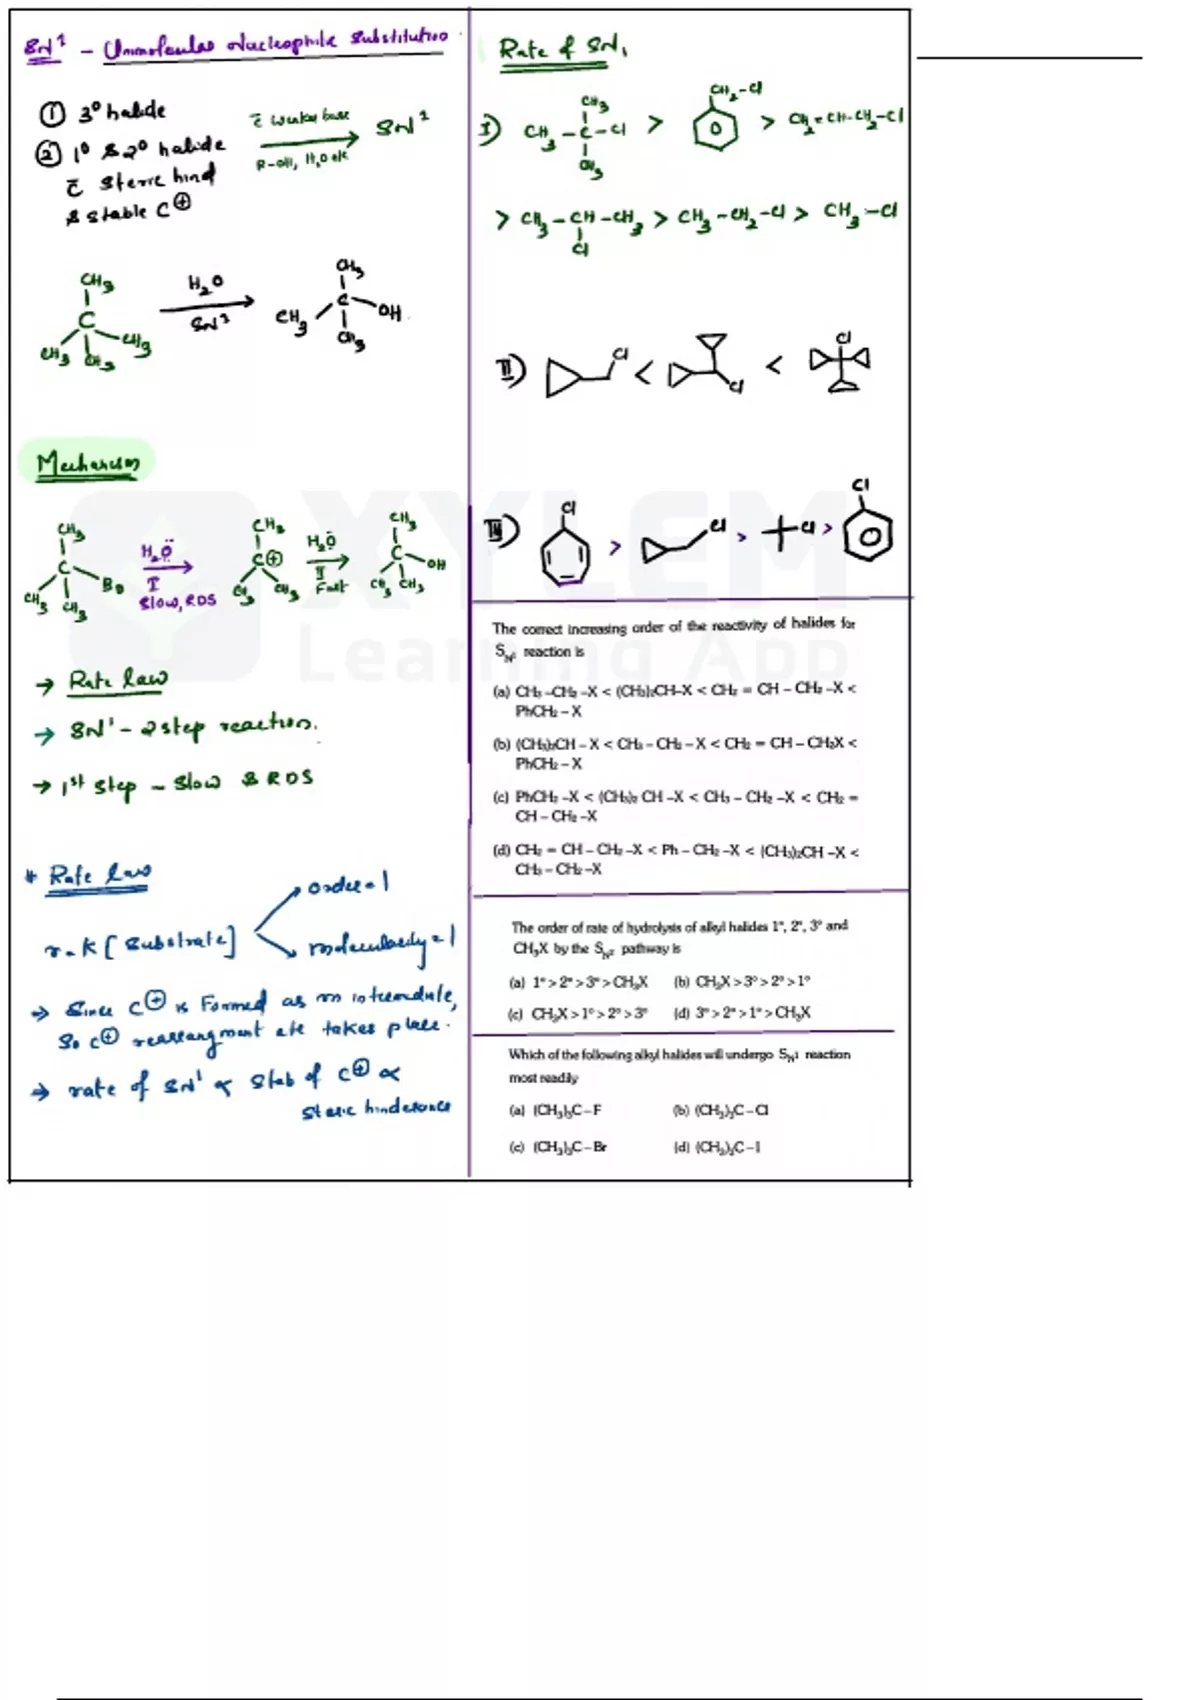 SN¹ - Unimolecular Nucleophilic Substitution
① 3° halide
② 1° & 2° halide
c̄ Steric hind
& stable C⊕
c̄ weaker base
R-OH, H₂O etc
SN¹
CH₃
C
CH₃ CH₃ CH₃
H₂O
SN¹
CH₃
CH₃ C OH
CH₃
Mechanism
CH₃
C
CH₃ CH₃ Br
H₂Ö
I
Slow, RDS
CH₃
C⊕
CH₃ CH₃
H₂Ö
II
Fast
CH₃
C OH
CH₃ CH₃
→ Rate law
→ SN¹ - 2 step reaction.
→ 1st step - slow & RDS
* Rate law
r = k [substrate]
order = 1
molecularity = 1
⇒ Since C⊕ is formed as an intermediate,
So C⊕ rearrangment etc takes place.
⇒ rate of SN¹ ∝ Stab of C⊕ ∝
steric hinderance
Rate of SN₁
I) CH₃-C-Cl > CH₂-Cl > CH₂=CH-CH₂-Cl
CH₃
CH₃
> CH₃-CH-CH₃ > CH₃-CH₂-Cl > CH₃-Cl
Cl
II) Cl < Cl < Cl
III) Cl > Cl > Cl > Cl
XYLEM
Learning App
The correct increasing order of the reactivity of halides for
S_N¹ reaction is
(a) CH₃ –CH₂ –X < (CH₃)₂CH–X < CH₂ = CH – CH₂ –X <
PhCH₂ – X
(b) (CH₃)₂CH – X < CH₃ – CH₂ – X < CH₂ = CH – CH₂X <
PhCH₂ – X
(c) PhCH₂ –X < (CH₃)₂ CH –X < CH₃ – CH₂ –X < CH₂ =
CH – CH₂ –X
(d) CH₂ = CH – CH₂ –X < Ph – CH₂ –X < (CH₃)₂CH –X <
CH₃ – CH₂ –X
The order of rate of hydrolysis of alkyl halides 1°, 2°, 3° and
CH₃X by the S_N² pathway is
(a) 1° > 2° > 3° > CH₃X (b) CH₃X > 3° > 2° > 1°
(c) CH₃X > 1° > 2° > 3° (d) 3° > 2° > 1° > CH₃X
Which of the following alkyl halides will undergo S_N¹ reaction
most readily
(a) (CH₃)₃C – F (b) (CH₃)₃C – Cl
(c) (CH₃)₃C – Br (d) (CH₃)₃C – I